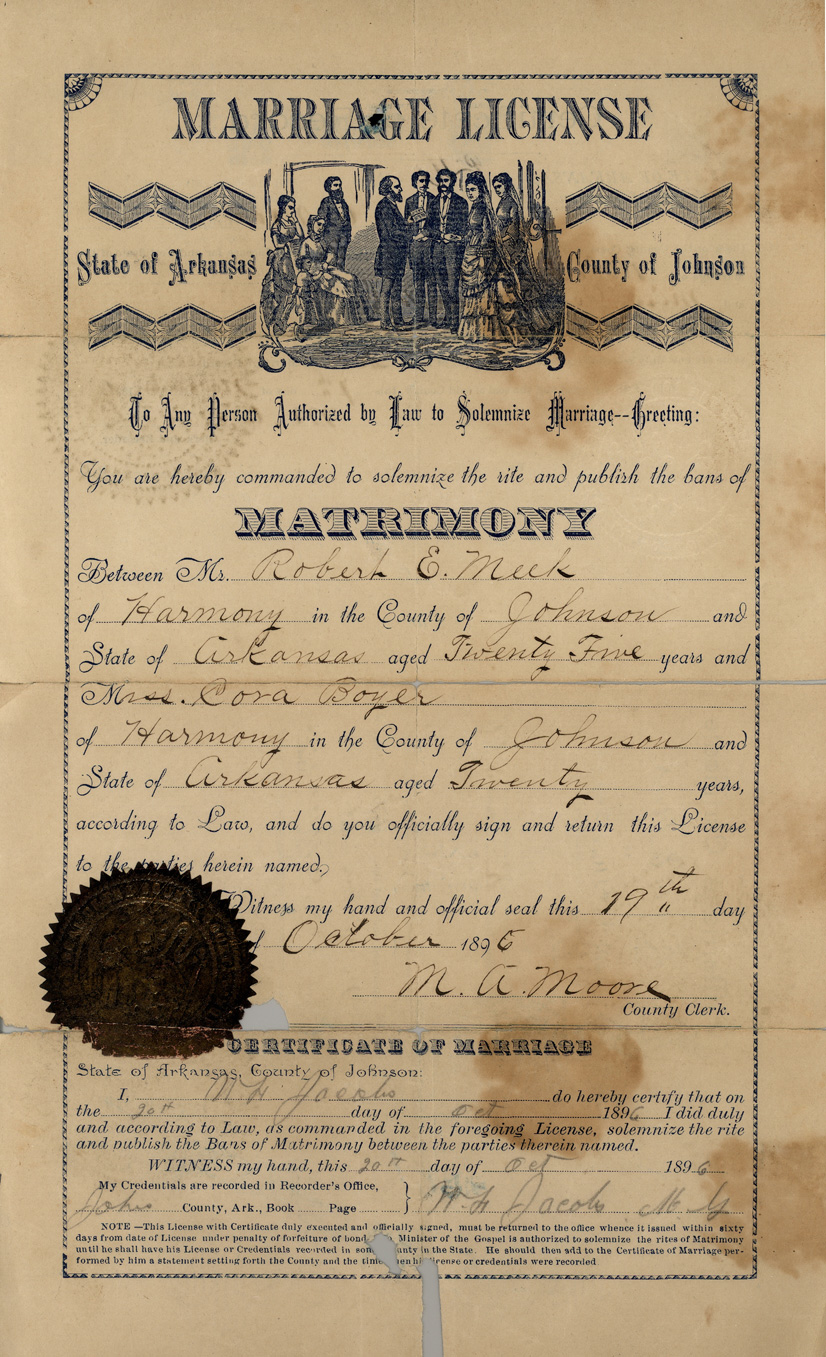 MARRIAGE LICENSE
State of Arkansas
County of Johnson
To Any Person Authorized by Law to Solemnize Marriage--Greeting:
You are hereby commanded to solemnize the rite and publish the bans of
MATRIMONY
Between Mr. Robert E. Meek
of Harmony in the County of Johnson and
State of Arkansas aged Twenty Five years and
Miss. Cora Boyer
of Harmony in the County of Johnson and
State of Arkansas aged Twenty years,
according to Law, and do you officially sign and return this License
to the parties herein named.
Witness my hand and official seal this 19th day
October 1896
M. A. Moore
County Clerk.
CERTIFICATE OF MARRIAGE
State of Arkansas, County of Johnson:
I, W H Jacobs do hereby certify that on
the 20th day of Oct 1896 I did duly
and according to Law, as commanded in the foregoing License, solemnize the rite
and publish the Bans of Matrimony between the parties therein named.
WITNESS my hand, this 20th day of Oct 1896
My Credentials are recorded in Recorder's Office,
Johns County, Ark., Book Page
W. H Jacobs M G
NOTE—This License with Certificate duly executed and officially signed, must be returned to the office whence it issued within sixty
days from date of License under penalty of forfeiture of bond. Minister of the Gospel is authorized to solemnize the rites of Matrimony
until he shall have his License or Credentials recorded in some County in the State. He should then add to the Certificate of Marriage per-
formed by him a statement setting forth the County and the time when his license or credentials were recorded